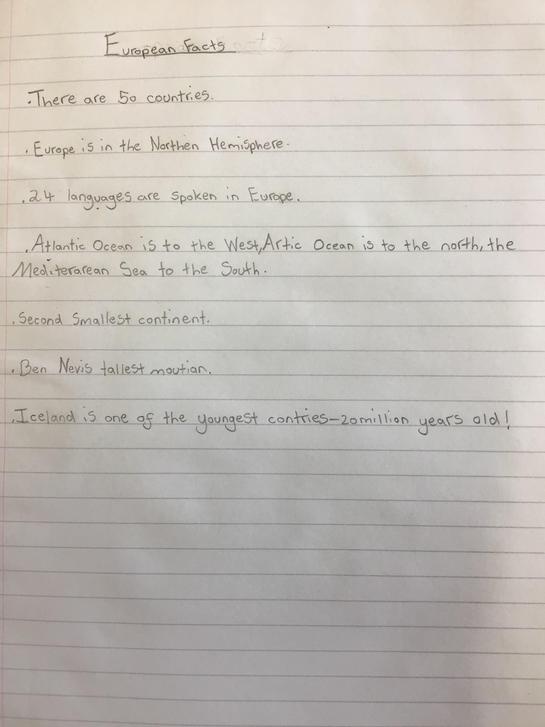 European Facts
.There are 50 countries.
. Europe is in the Northen Hemisphere.
. 24 languages are spoken in Europe.
. Atlantic Ocean is to the West, Artic Ocean is to the north, the
Mediterarean Sea to the South.
. Second Smallest continent.
. Ben Nevis tallest moutian.
. Iceland is one of the youngest contries-20 million years old!